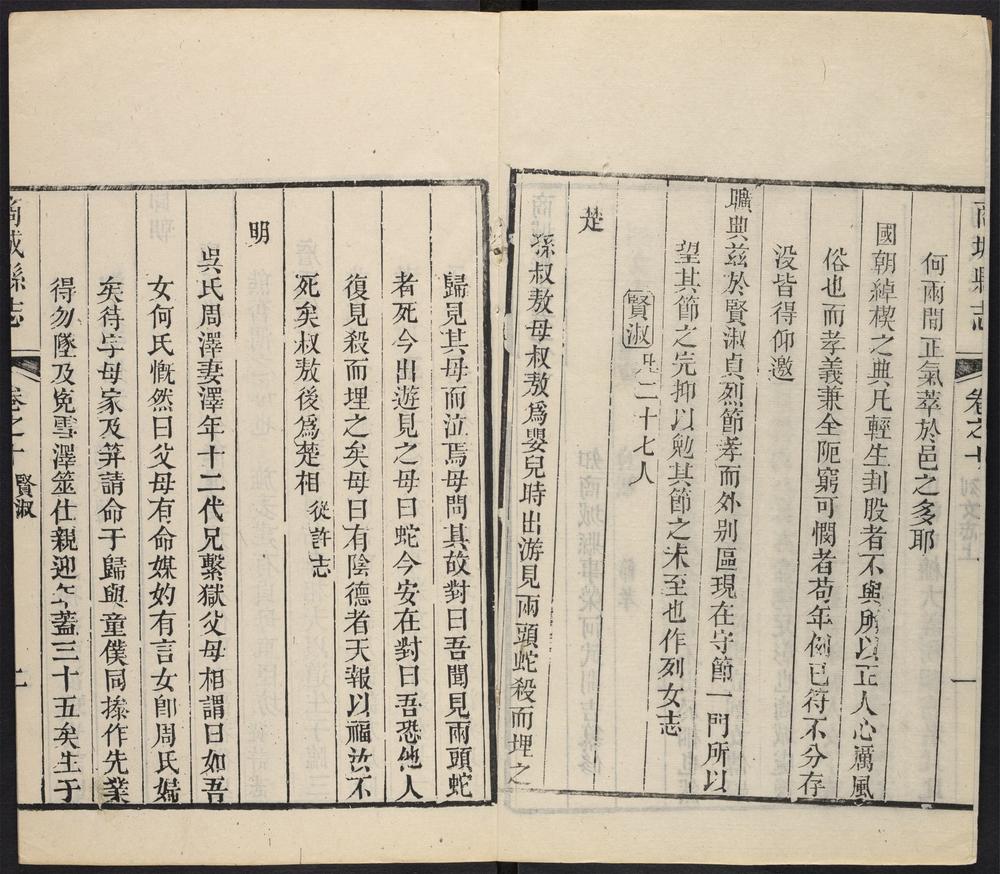 商城縣志
卷之十
列女志上
一
何兩間正氣萃於邑之多耶
國朝綽楔之典凡輕生刲股者不與所以正人心厲風
俗也而孝義兼全阨窮可憫者苟年例已符不分存
没皆得仰邀
曠典兹於賢淑貞烈節孝而外别區現在守節一門所以
望其節之完抑以勉其節之未至也作列女志
賢淑 凡二十七人
楚
孫叔敖母叔敖爲嬰兒時出游見兩頭蛇殺而埋之
歸見其母而泣焉母問其故對曰吾聞見兩頭蛇
者死今出遊見之母曰蛇今安在對曰吾恐他人
復見殺而埋之矣母曰有陰德者天報以福汝不
死矣叔敖後爲楚相 從許志
明
吳氏周澤妻澤年十二代兄繫獄父母相謂曰如吾
女何氏慨然曰父母有命媒妁有言女卽周氏婦
矣待字母家及笄請命于歸與童僕同操作先業
得勿墜及寃雪澤筮仕親迎年蓋三十五矣生于
商城縣志
卷之十 賢淑
二